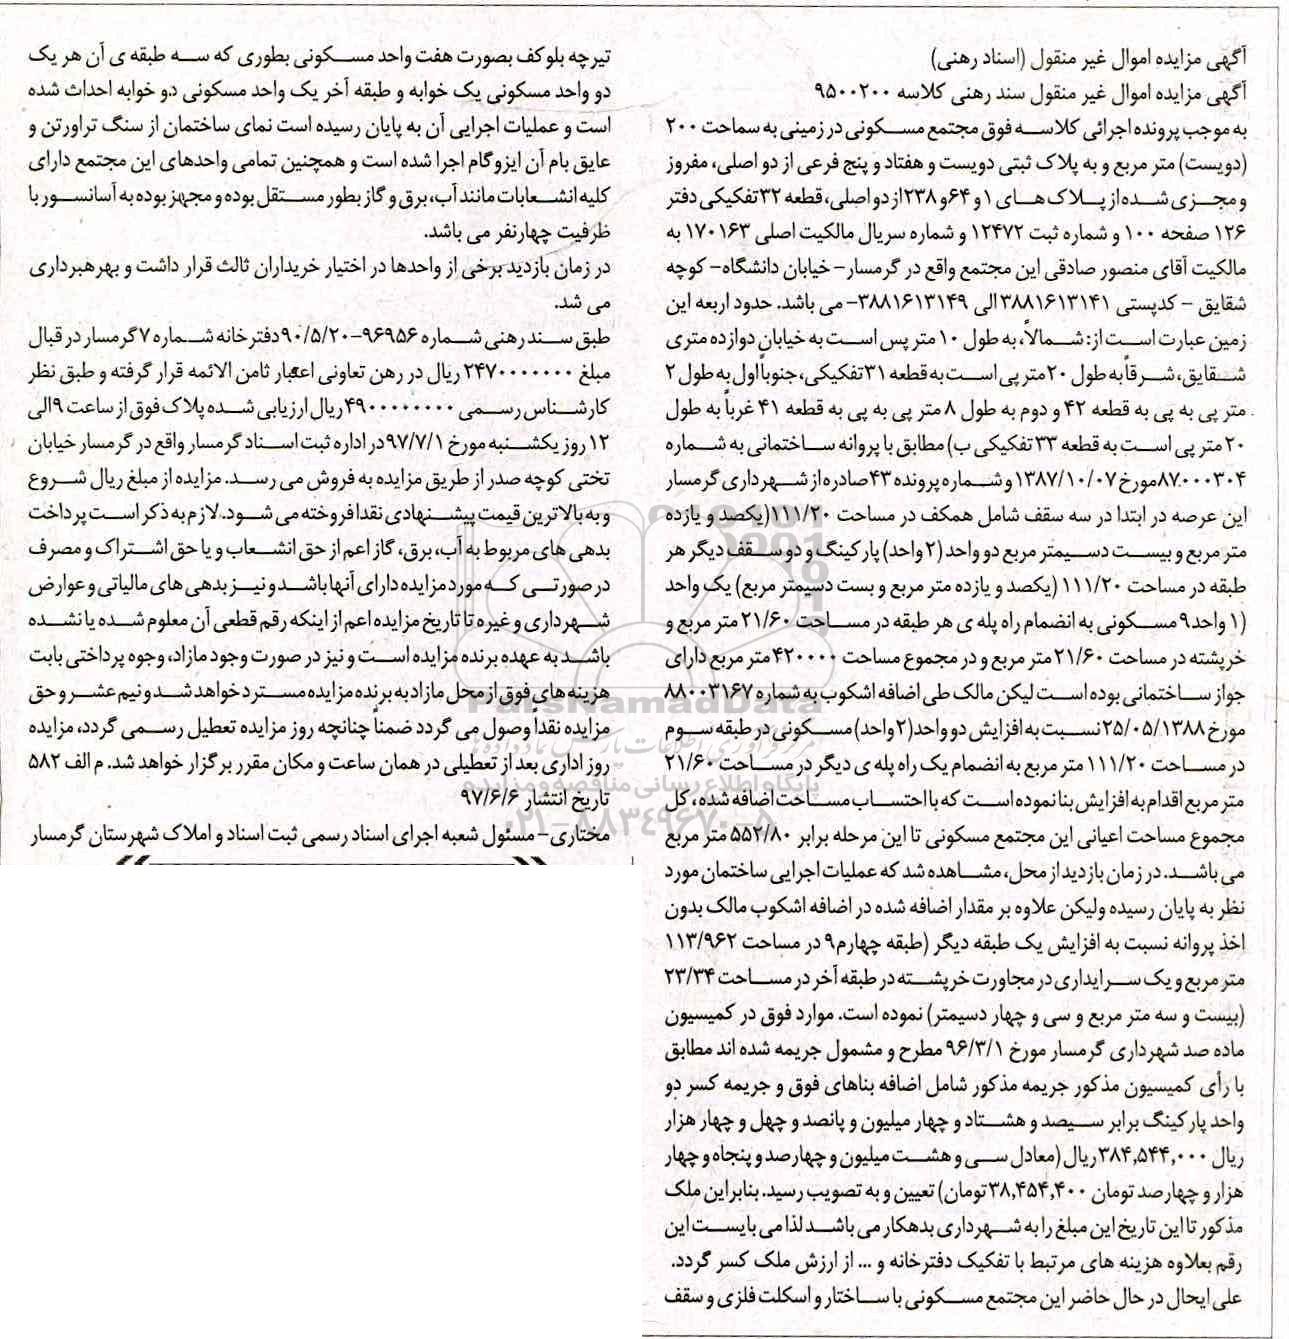 آگهی مزایده اموال غیر منقول (اسناد رهنی)
آگهی مزایده اموال غیر منقول سند رهنی کلاسه ۹۵۰۰۲۰۰
به موجب پرونده اجرائی کلاسه فوق مجتمع مسکونی در زمینی به سماحت ۲۰۰
(دویست) متر مربع و به پلاک ثبتی دویست و هفتاد و پنج فرعی از دو اصلی، مفروز
و مجزی شده از پلاک های ۱ و ۶۴ و ۲۳۸ از دو اصلی، قطعه ۳۲ تفکیکی دفتر
۱۲۶ صفحه ۱۰۰ و شماره ثبت ۱۲۴۷۲ و شماره سریال مالکیت اصلی ۱۷۰۱۶۳ به
مالکیت آقای منصور صادقی این مجتمع واقع در گرمسار- خیابان دانشگاه- کوچه
شقایق - کدپستی ۳۸۸۱۶۱۳۱۴۱ الی ۳۸۸۱۶۱۳۱۴۹- می باشد. حدود اربعه این
زمین عبارت است از: شمالاً، به طول ۱۰ متر پس است به خیابان دوازده متری
شقایق، شرقاً به طول ۲۰ متر پی است به قطعه ۳۱ تفکیکی، جنوباً اول به طول ۲
متر پی به پی به قطعه ۴۲ و دوم به طول ۸ متر پی به پی به قطعه ۴۱ غرباً به طول
۲۰ متر پی است به قطعه ۳۳ تفکیکی ب) مطابق با پروانه ساختمانی به شماره
۸۷۰۰۰۳۰۴ مورخ ۱۳۸۷/۱۰/۰۷ و شماره پرونده ۴۳ صادره از شهرداری گرمسار
این عرصه در ابتدا در سه سقف شامل همکف در مساحت ۱۱۱/۲۰ (یکصد و یازده
متر مربع و بیست دسیمتر مربع دو واحد (۲ واحد) پارکینگ و دو سقف دیگر هر
طبقه در مساحت ۱۱۱/۲۰ (یکصد و یازده متر مربع و بست دسیمتر مربع) یک واحد
(۱ واحد۹ مسکونی به انضمام راه پله ی هر طبقه در مساحت ۲۱/۶۰ متر مربع و
خرپشته در مساحت ۲۱/۶۰ متر مربع و در مجموع مساحت ۴۲۰۰۰۰ متر مربع دارای
جواز ساختمانی بوده است لیکن مالک طی اضافه اشکوب به شماره ۸۸۰۰۳۱۶۷
مورخ ۲۵/۰۵/۱۳۸۸ نسبت به افزایش دو واحد (۲ واحد) مسکونی در طبقه سوم
در مساحت ۱۱۱/۲۰ متر مربع به انضمام یک راه پله ی دیگر در مساحت ۲۱/۶۰
متر مربع اقدام به افزایش بنا نموده است که با احتساب مساحت اضافه شده، کل
مجموع مساحت اعیانی این مجتمع مسکونی تا این مرحله برابر ۵۵۲/۸۰ متر مربع
می باشد. در زمان بازدید از محل، مشاهده شد که عملیات اجرایی ساختمان مورد
نظر به پایان رسیده ولیکن علاوه بر مقدار اضافه شده در اضافه اشکوب مالک بدون
اخذ پروانه نسبت به افزایش یک طبقه دیگر (طبقه چهارم۹ در مساحت ۱۱۳/۹۶۲
متر مربع و یک سرایداری در مجاورت خرپشته در طبقه آخر در مساحت ۲۳/۳۴
(بیست و سه متر مربع و سی و چهار دسیمتر) نموده است. موارد فوق در کمیسیون
ماده صد شهرداری گرمسار مورخ ۹۶/۳/۱ مطرح و مشمول جریمه شده اند مطابق
با رأی کمیسیون مذکور جریمه مذکور شامل اضافه بناهای فوق و جریمه کسر دو
واحد پارکینگ برابر سیصد و هشتاد و چهار میلیون و پانصد و چهل و چهار هزار
ریال ۳۸۴,۵۴۴,۰۰۰ ریال (معادل سی و هشت میلیون و چهارصد و پنجاه و چهار
هزار و چهارصد تومان ۳۸,۴۵۴,۴۰۰ تومان) تعیین و به تصویب رسید. بنابراین ملک
مذکور تا این تاریخ این مبلغ را به شهرداری بدهکار می باشد لذا می بایست این
رقم بعلاوه هزینه های مرتبط با تفکیک دفترخانه و ... از ارزش ملک کسر گردد.
علی ایحال در حال حاضر این مجتمع مسکونی با ساختار و اسکلت فلزی و سقف
تیرچه بلوکف بصورت هفت واحد مسکونی بطوری که سه طبقه ی آن هر یک
دو واحد مسکونی یک خوابه و طبقه آخر یک واحد مسکونی دو خوابه احداث شده
است و عملیات اجرایی آن به پایان رسیده است نمای ساختمان از سنگ تراورتن و
عایق بام آن ایزوگام اجرا شده است و همچنین تمامی واحدهای این مجتمع دارای
کلیه انشعابات مانند آب، برق و گاز بطور مستقل بوده و مجهز بوده به آسانسور با
ظرفیت چهارنفر می باشد.
در زمان بازدید برخی از واحدها در اختیار خریداران ثالث قرار داشت و بهرهبرداری
می شد.
طبق سند رهنی شماره ۹۶۹۵۶-۹۰/۵/۲۰ دفترخانه شماره ۷ گرمسار در قبال
مبلغ ۲۴۷۰۰۰۰۰۰۰ ریال در رهن تعاونی اعتبار ثامن الائمه قرار گرفته و طبق نظر
کارشناس رسمی ۴۹۰۰۰۰۰۰۰۰ ریال ارزیابی شده پلاک فوق از ساعت ۹ الی
۱۲ روز یکشنبه مورخ ۹۷/۷/۱ در اداره ثبت اسناد گرمسار واقع در گرمسار خیابان
تختی کوچه صدر از طریق مزایده به فروش می رسد. مزایده از مبلغ ریال شروع
و به بالاترین قیمت پیشنهادی نقدا فروخته می شود. لازم به ذکر است پرداخت
بدهی های مربوط به آب، برق، گاز اعم از حق انشعاب و یا حق اشتراک و مصرف
در صورتی که مورد مزایده دارای آنها باشد و نیز بدهی های مالیاتی و عوارض
شهرداری و غیره تا تاریخ مزایده اعم از اینکه رقم قطعی آن معلوم شده یا نشده
باشد به عهده برنده مزایده است و نیز در صورت وجود مازاد، وجوه پرداختی بابت
هزینه های فوق از محل مازاد به برنده مزایده مسترد خواهد شد و نیم عشر و حق
مزایده نقداً وصول می گردد ضمناً چنانچه روز مزایده تعطیل رسمی گردد، مزایده
روز اداری بعد از تعطیلی در همان ساعت و مکان مقرر برگزار خواهد شد. م الف ۵۸۲
تاریخ انتشار ۹۷/۶/۶
مختاری- مسئول شعبه اجرای اسناد رسمی ثبت اسناد و املاک شهرستان گرمسار
ParsNamadData
پایگاه اطلاع رسانی مناقصه و مزایده
۰۲۱-۸۸۳۴۹۶۷۰-۵